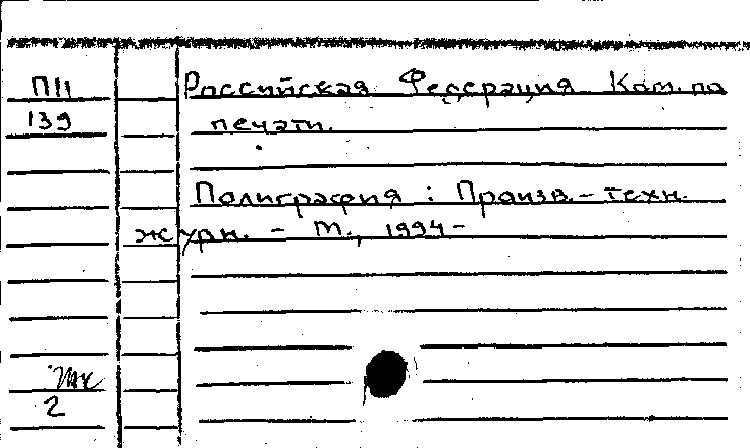 П11 Российская Федерация. Ком. по
139 печати.
Полиграфия : Произв.-техн.
журн. - М., 1994-
2